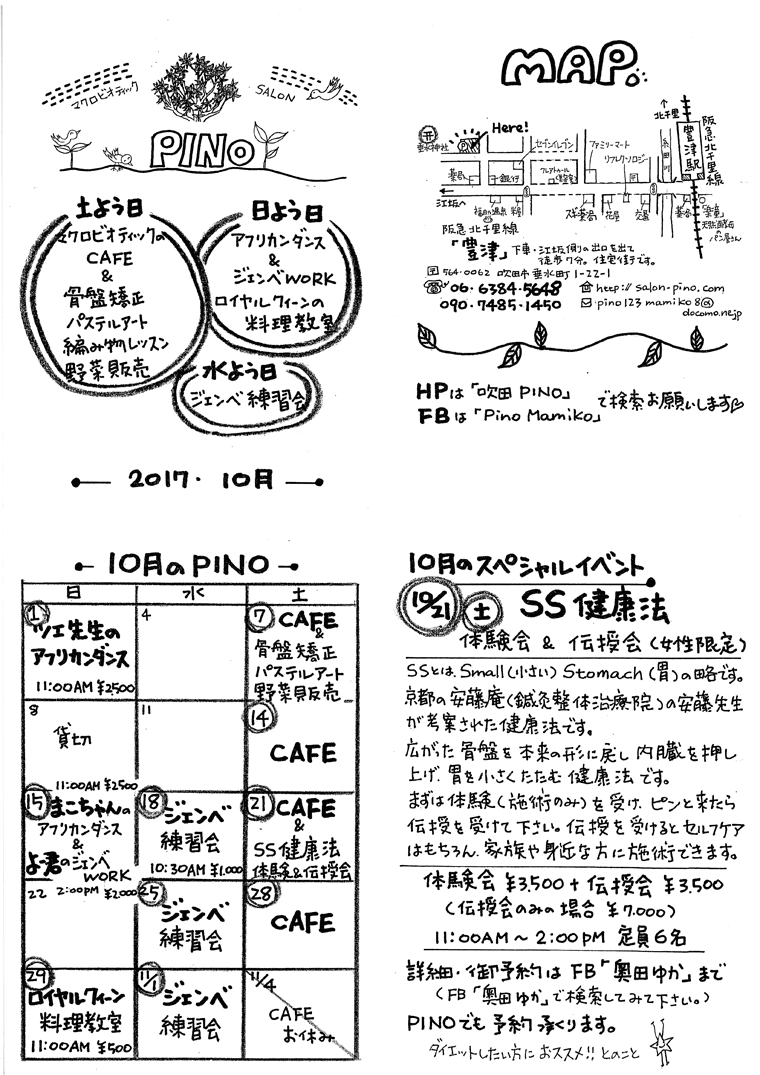 マクロビオティック SALON
PINO
土よう日
マクロビオティックの
CAFE
&
骨盤矯正
パステルアート
編み物レッスン
野菜販売
日よう日
アフリカンダンス
&
ジェンベWORK
ロイヤルクィーンの
料理教室
水よう日
ジェンベ練習会
2017. 10月
MAP.
垂水神社
Here!
セブンイレブン
ファミリーマート
リフレクソロジー
北千里
豊津駅
阪急北千里線
薬局
銀行
江坂へ
スギ薬局
花屋
交番
薬局
パン屋さん
阪急北千里線
「豊津」下車・江坂側の出口を出て
徒歩7分。住宅街です。
〒564-0062 吹田市垂水町1-22-1
☎06-6384-5648
http://salon-pino.com
090-7485-1450
pino123mamiko8@
docomo.ne.jp
HPは「吹田PINO」
FBは「Pino Mamiko」
で検索お願いします♡
10月のPINO
日 水 土
1
ツエ先生の
アフリカンダンス
11:00AM ¥2500
4
7 CAFE
&
骨盤矯正
パステルアート
野菜販売
8
貸切
11
14
CAFE
11:00AM ¥2500
15 まこちゃんの
アフリカンダンス
&
よ君のジェンベ
WORK
2:00PM ¥2000
18 ジェンベ
練習会
10:30AM ¥1,000
21 CAFE
&
SS健康法
体験&伝授会
22
25
ジェンベ
練習会
28
CAFE
29
ロイヤルクィーン
料理教室
11:00AM ¥500
11/1
ジェンベ
練習会
11/4
CAFE
お休み
10月のスペシャルイベント
10/21 土 SS健康法
体験会 & 伝授会(女性限定)
SSとは、Small(小さい) Stomach(胃)の略です。
京都の安藤庵(鍼灸整体治療院)の安藤先生
が考案された健康法です。
広がった骨盤を本来の形に戻し内臓を押し
上げ、胃を小さくたたむ健康法です。
まずは体験(施術のみ)を受け、ピンと来たら
伝授を受けて下さい。伝授を受けるとセルフケア
はもちろん、家族や身近な方に施術できます。
体験会 ¥3,500 + 伝授会 ¥3,500
(伝授会のみの場合 ¥7,000)
11:00AM～2:00PM 定員6名
詳細・御予約は FB「奥田ゆか」まで
(FB「奥田ゆか」で検索してみて下さい。)
PINOでも予約承ります。
ダイエットしたい方におススメ!! とのこと